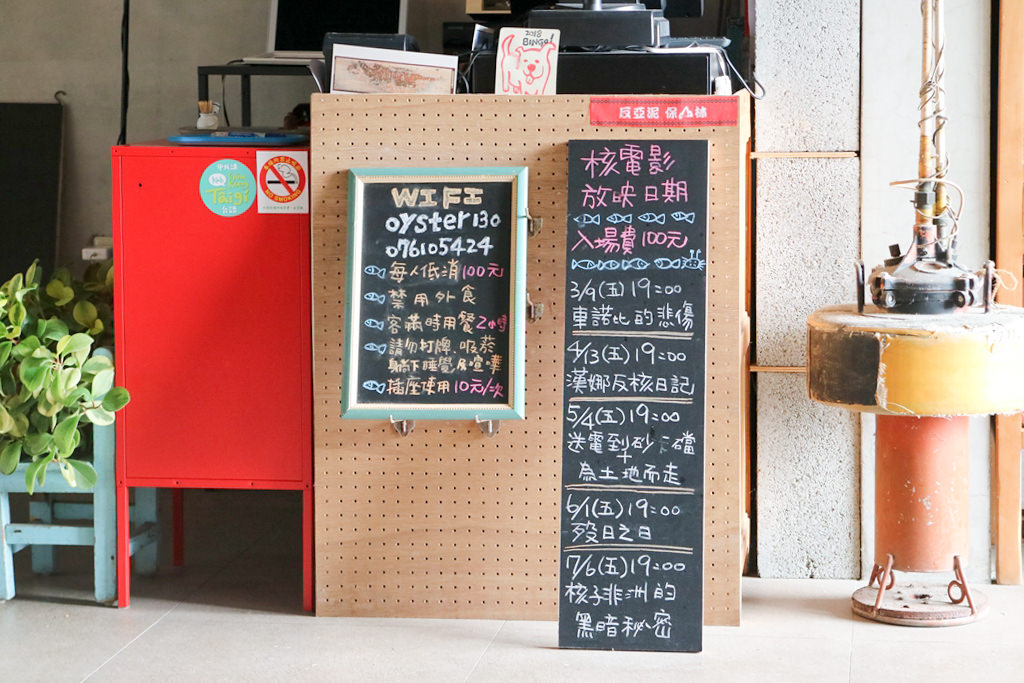 2018
BINGO!
反亞泥 保山林
Taigi
台語
NO SMOKING
WIFI
oyster130
076105424
每人低消100元
禁用外食
客滿時用餐2小時
請勿打牌、吸菸
躺下睡覺及喧嘩
插座使用10元/次
核電影
放映日期
入場費100元
3/9(五)19:00
車諾比的悲傷
4/13(五)19:00
漢娜反核日記
5/4(五)19:00
送電到砂卡礑
+
為土地而走
6/1(五)19:00
歿日之日
7/6(五)19:00
核子非洲的
黑暗秘密